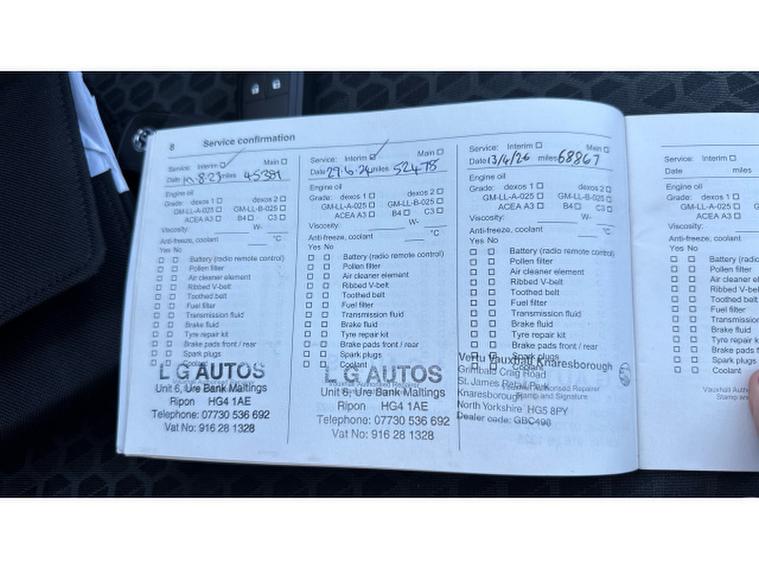 8 Service confirmation
Service: Interim Main
Date 11.8.23 miles 45381
Engine oil
Grade: dexos 1 dexos 2
GM-LL-A-025 GM-LL-B-025
ACEA A3 B4 C3
Viscosity: W-
Anti-freeze, coolant °C
Yes No
Battery (radio remote control)
Pollen filter
Air cleaner element
Ribbed V-belt
Toothed belt
Fuel filter
Transmission fluid
Brake fluid
Tyre repair kit
Brake pads front / rear
Spark plugs
Coolant
L G AUTOS
Unit 6, Ure Bank Maltings
Ripon HG4 1AE
Telephone: 07730 536 692
Vat No: 916 28 1328
Service: Interim Main
Date 29.6.24 miles 52478
Engine oil
Grade: dexos 1 dexos 2
GM-LL-A-025 GM-LL-B-025
ACEA A3 B4 C3
Viscosity: W-
Anti-freeze, coolant °C
Yes No
Battery (radio remote control)
Pollen filter
Air cleaner element
Ribbed V-belt
Toothed belt
Fuel filter
Transmission fluid
Brake fluid
Tyre repair kit
Brake pads front / rear
Spark plugs
Coolant
L G AUTOS
Vauxhall Authorised Repairer
Unit 6, Ure Bank Maltings
Ripon HG4 1AE
Telephone: 07730 536 692
Vat No: 916 28 1328
Service: Interim Main
Date 13/4/26 miles 68867
Engine oil
Grade: dexos 1 dexos 2
GM-LL-A-025 GM-LL-B-025
ACEA A3 B4 C3
Viscosity: W-
Anti-freeze, coolant °C
Yes No
Battery (radio remote control)
Pollen filter
Air cleaner element
Ribbed V-belt
Toothed belt
Fuel filter
Transmission fluid
Brake fluid
Tyre repair kit
Brake pads front / rear
Spark plugs
Coolant
Vertu Vauxhall Knaresborough
Grimbald Craig Road
St. James Retail Park
Knaresborough
North Yorkshire HG5 8PY
Dealer code: GBC498
Vauxhall Authorised Repairer
Stamp and Signature
Service: Interim
Date miles
Engine oil
Grade: dexos 1
GM-LL-A-025 G
ACEA A3
Viscosity:
Anti-freeze, coolant
Yes No
Battery (radio
Pollen filter
Air cleaner e
Ribbed V-be
Toothed belt
Fuel filter
Transmission
Brake fluid
Tyre repair k
Brake pads
Spark plugs
Coolant
Vauxhall Autho
Stamp an